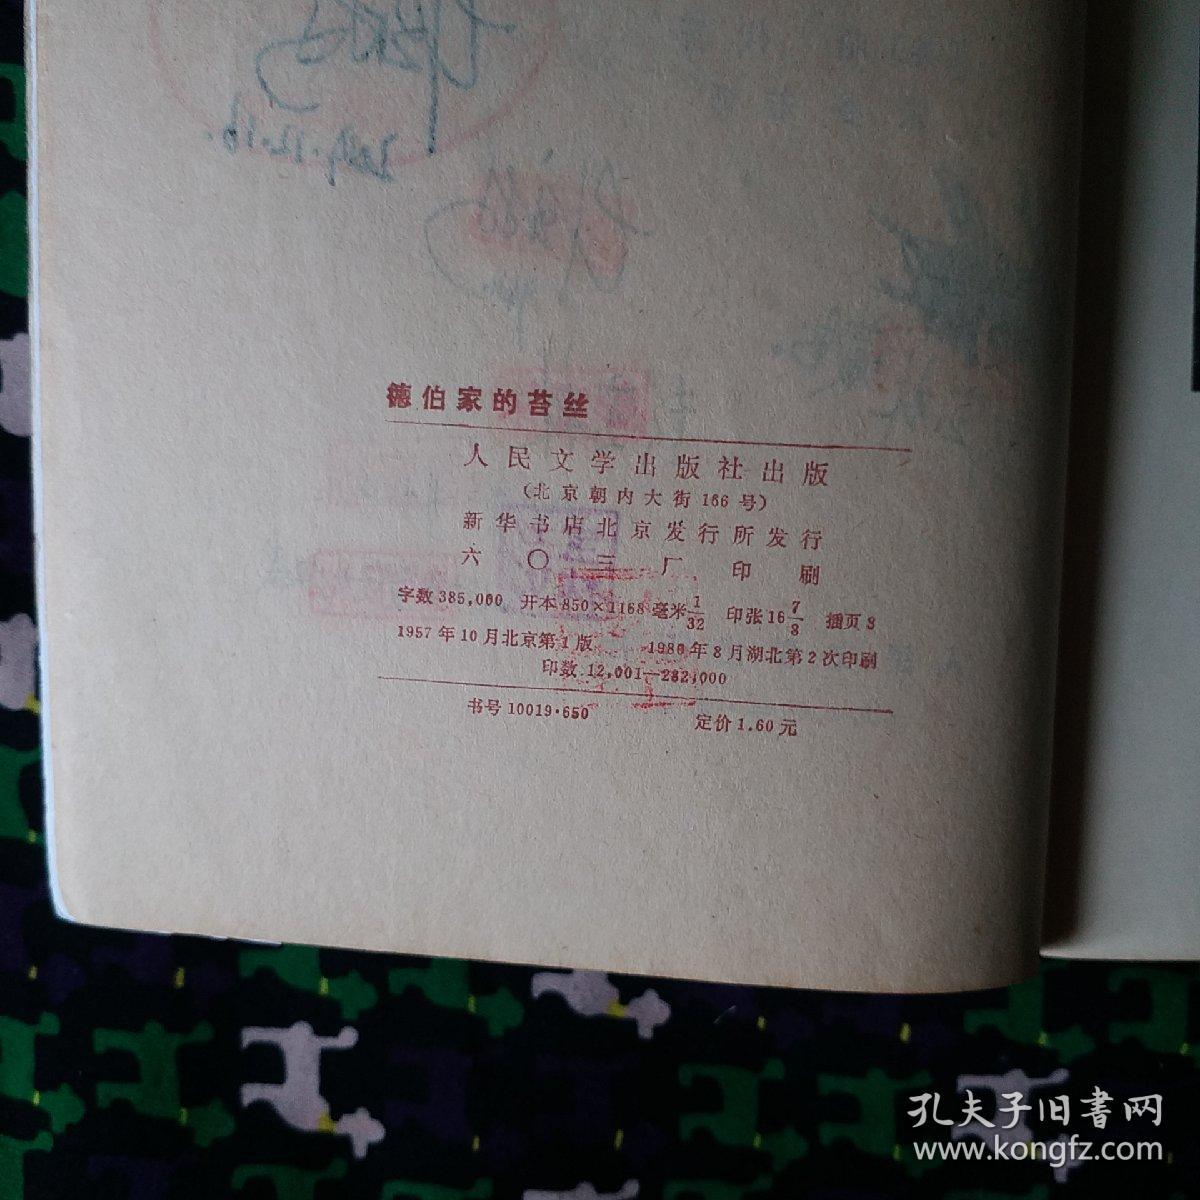 德伯家的苔丝
人民文学出版社出版
(北京朝内大街166号)
新华书店北京发行所发行
六〇三厂印刷
字数385,000 开本850×1168毫米1/32 印张16 7/8 插页3
1957年10月北京第1版 1980年8月湖北第2次印刷
印数12,001—282,000
书号10019·650 定价1.60元
孔夫子旧書网
www.kongfz.com